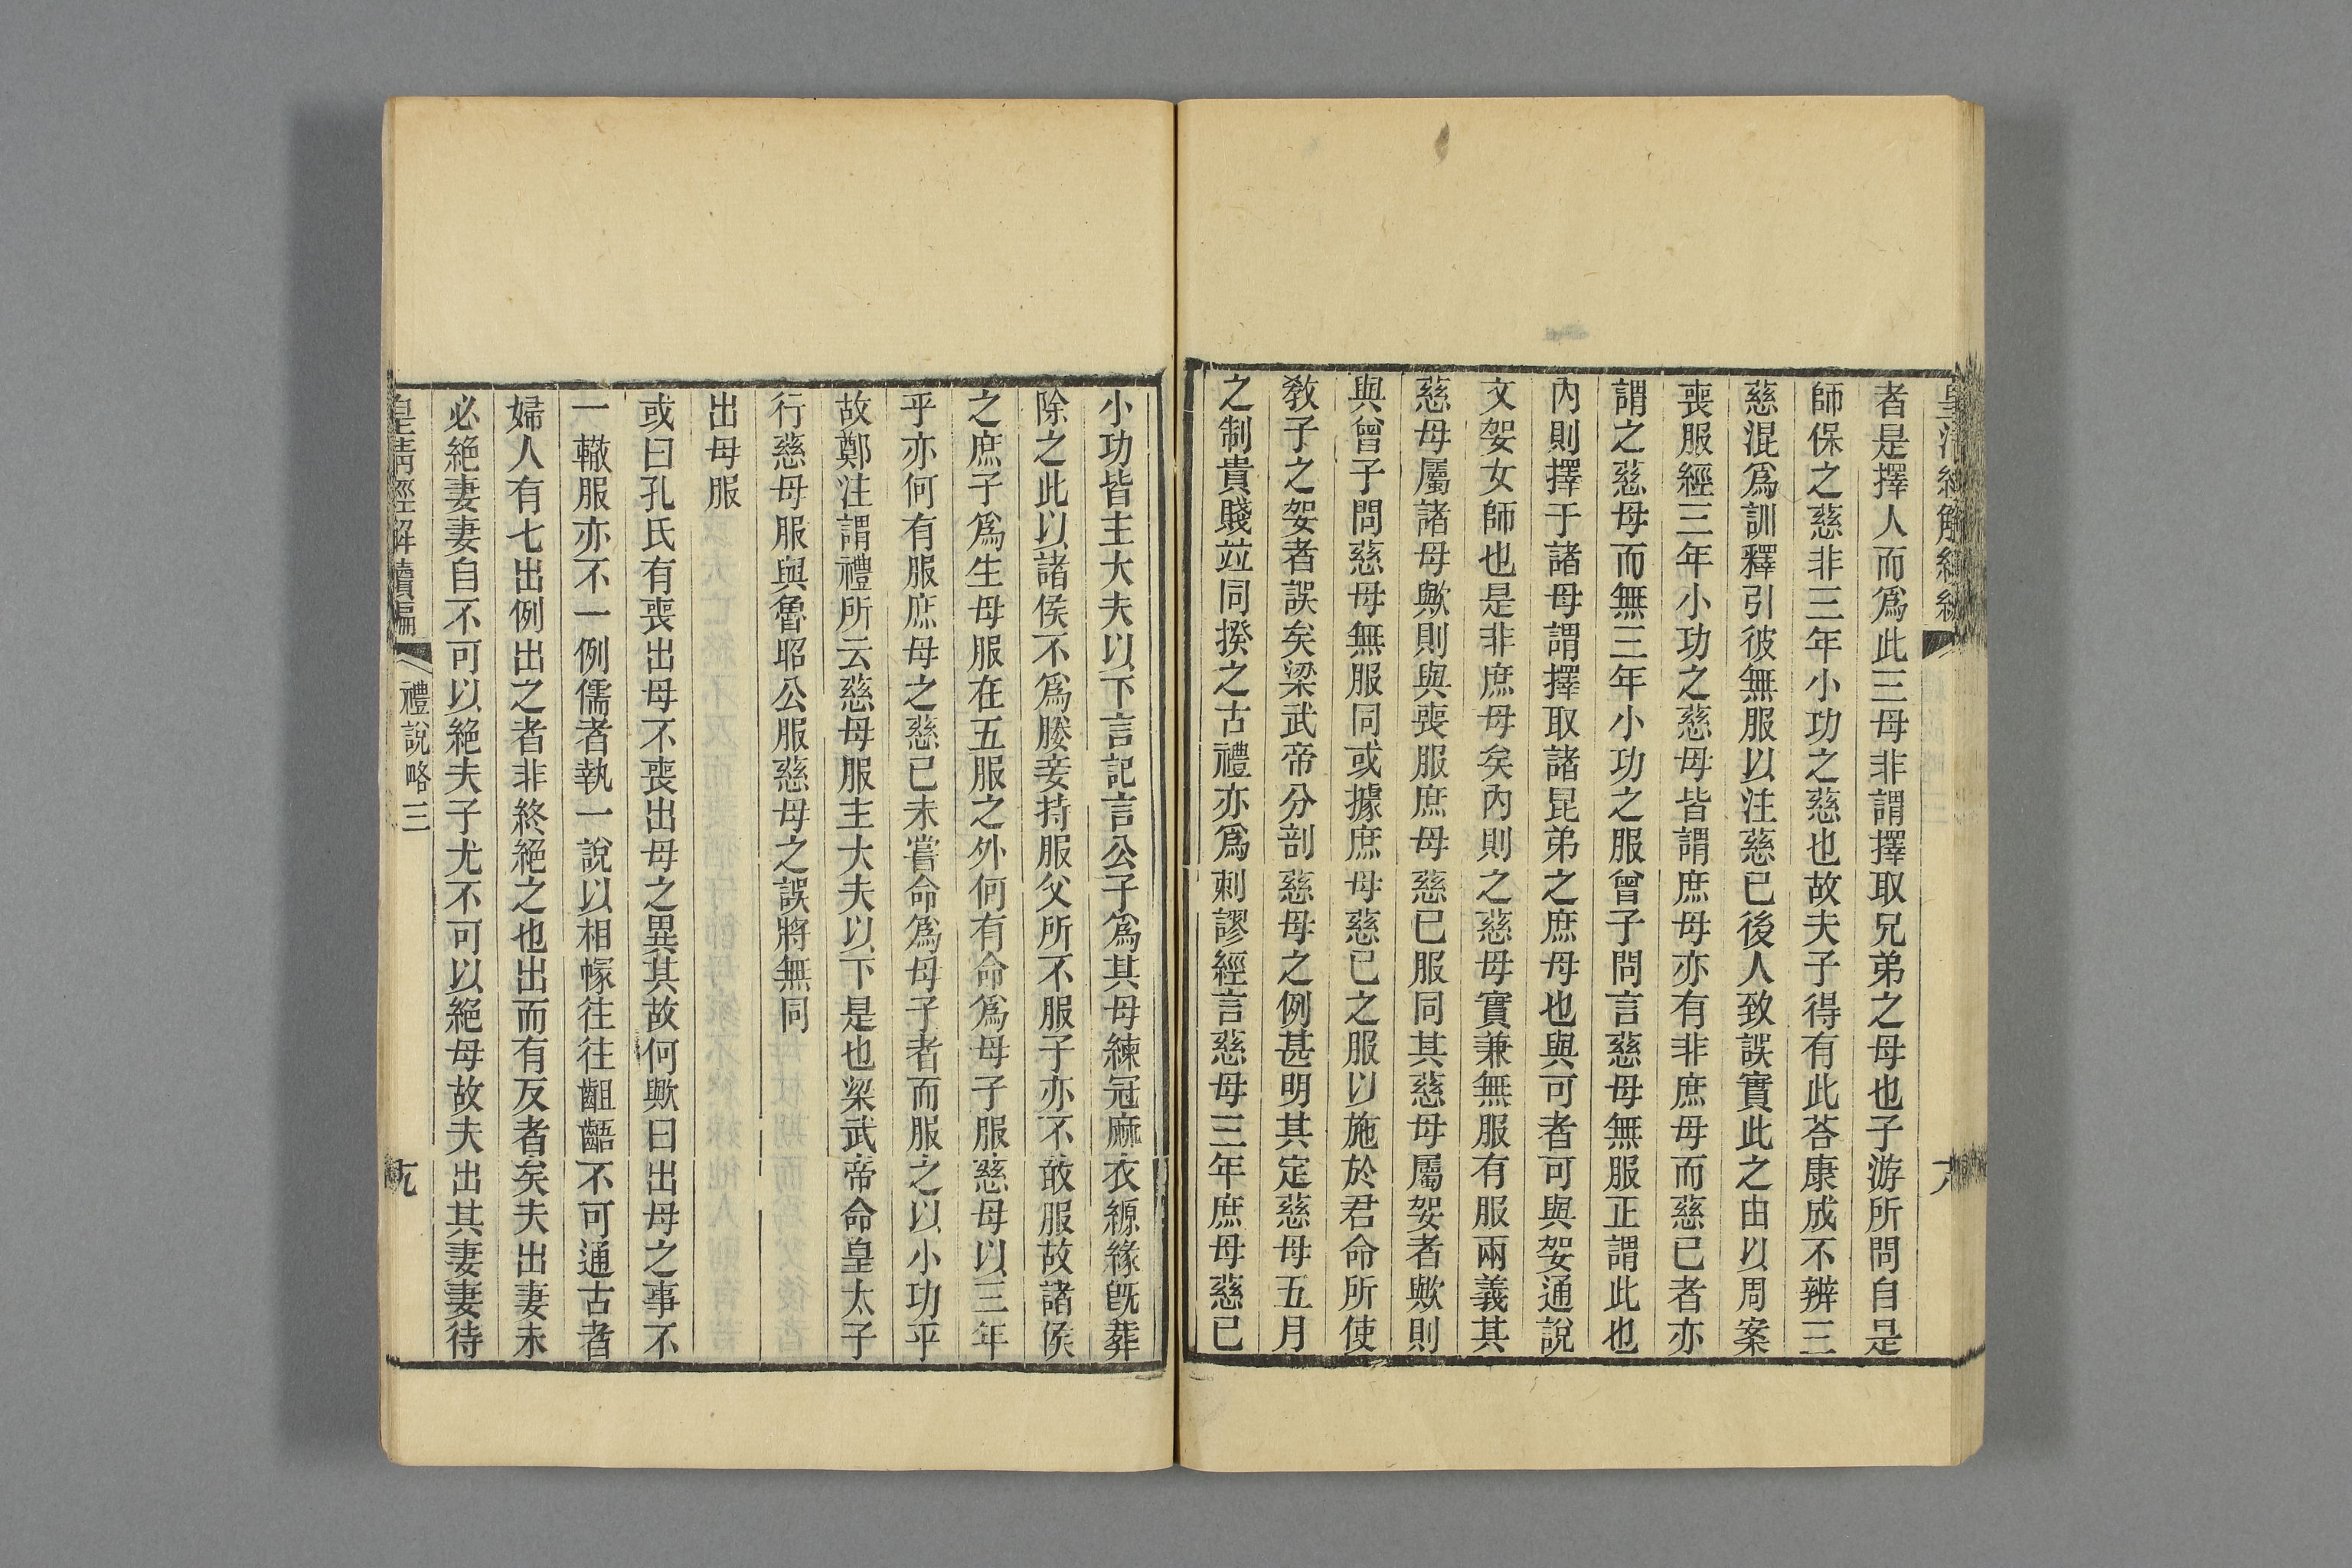 者是擇人而爲此三母非謂擇取兄弟之母也子游所問自是
師保之慈非三年小功之慈也故夫子得有此荅康成不辨三
慈混爲訓釋引彼無服以注慈已後人致誤實此之由以周案
喪服經三年小功之慈母皆謂庶母亦有非庶母而慈已者亦
謂之慈母而無三年小功之服曾子問言慈母無服正謂此也
內則擇于諸母謂擇取諸昆弟之庶母也與可者可與妿通說
文妿女師也是非庶母矣內則之慈母實兼無服有服兩義其
慈母屬諸母歟則與喪服庶母慈已服同其慈母屬妿者歟則
與曾子問慈母無服同或據庶母慈已之服以施於君命所使
敎子之妿者誤矣梁武帝分剖慈母之例甚明其定慈母五月
之制貴賤竝同揆之古禮亦爲刺謬經言慈母三年庶母慈已
小功皆主大夫以下言記言公子爲其母練冠麻衣縓緣旣葬
除之此以諸侯不爲媵妾持服父所不服子亦不敢服故諸侯
之庶子爲生母服在五服之外何有命爲母子服慈母以三年
乎亦何有服庶母之慈已未嘗命爲母子者而服之以小功乎
故鄭注謂禮所云慈母服主大夫以下是也梁武帝命皇太子
行慈母服與魯昭公服慈母之誤將無同
出母服
或曰孔氏有喪出母不喪出母之異其故何歟曰出母之事不
一轍服亦不一例儒者執一說以相幏往往齟齬不可通古者
婦人有七出例出之者非終絕之也出而有反者矣夫出妻未
必絕妻妻自不可以絕夫子尤不可以絕母故夫出其妻妻待
皇清經解續編
禮說略三